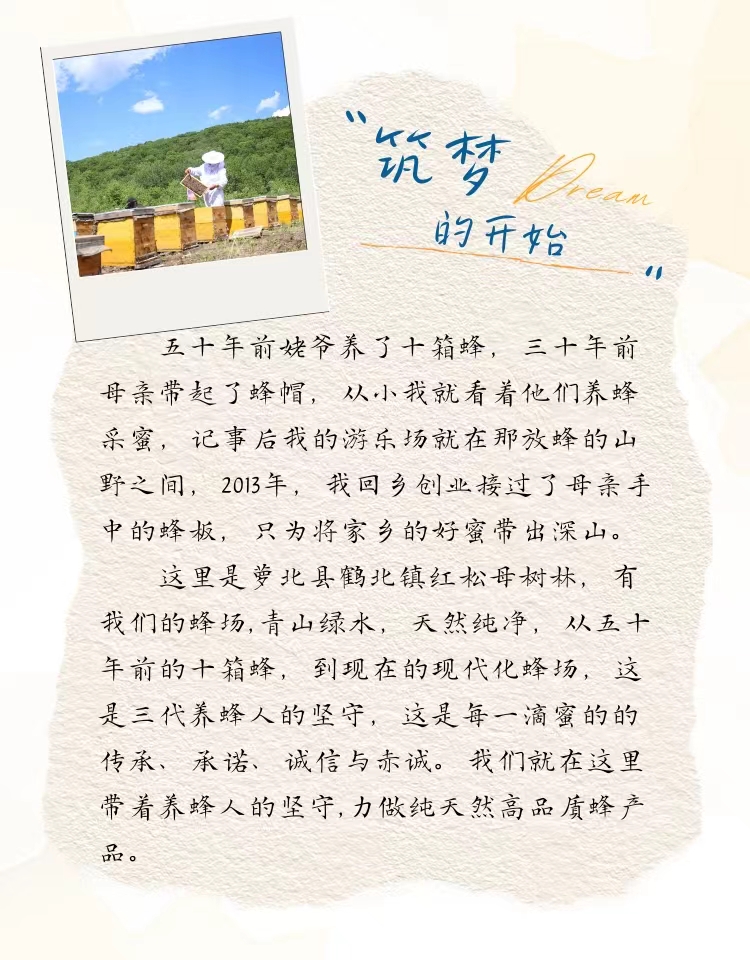 “筑梦 Dream
的开始”
五十年前姥爷养了十箱蜂，三十年前
母亲带起了蜂帽，从小我就看着他们养蜂
采蜜，记事后我的游乐场就在那放蜂的山
野之间，2013年，我回乡创业接过了母亲手
中的蜂板，只为将家乡的好蜜带出深山。
这里是萝北县鹤北镇红松母树林，有
我们的蜂场,青山绿水，天然纯净，从五十
年前的十箱蜂，到现在的现代化蜂场，这
是三代养蜂人的坚守，这是每一滴蜜的的
传承、承诺、诚信与赤诚。我们就在这里
带着养蜂人的坚守,力做纯天然高品质蜂产
品。